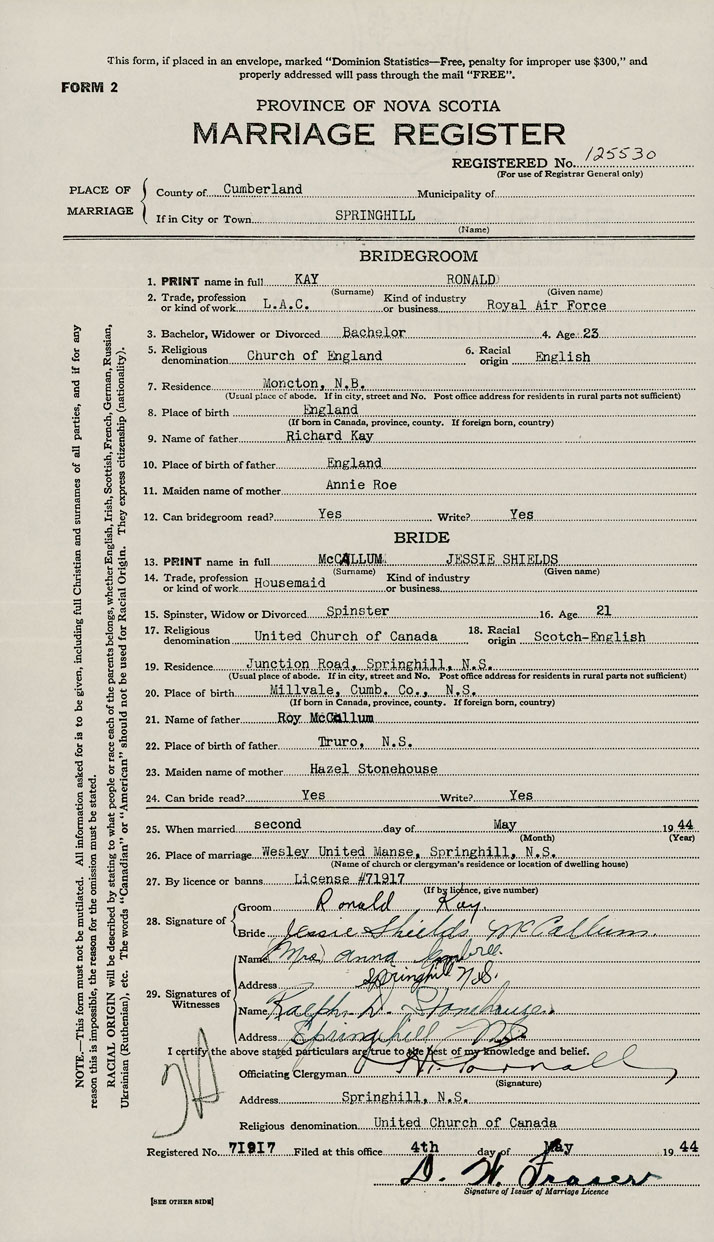 This form, if placed in an envelope, marked "Dominion Statistics—Free, penalty for improper use $300," and
properly addressed will pass through the mail "FREE".
FORM 2
PROVINCE OF NOVA SCOTIA
MARRIAGE REGISTER
REGISTERED No. 125530
(For use of Registrar General only)
PLACE OF MARRIAGE
County of Cumberland Municipality of
If in City or Town SPRINGHILL
(Name)
BRIDEGROOM
1. PRINT name in full KAY RONALD
(Surname) (Given name)
2. Trade, profession or kind of work L.A.C. Kind of industry or business Royal Air Force
3. Bachelor, Widower or Divorced Bachelor 4. Age 23
5. Religious denomination Church of England 6. Racial origin English
7. Residence Moncton, N.B.
(Usual place of abode. If in city, street and No. Post office address for residents in rural parts not sufficient)
8. Place of birth England
(If born in Canada, province, county. If foreign born, country)
9. Name of father Richard Kay
10. Place of birth of father England
11. Maiden name of mother Annie Roe
12. Can bridegroom read? Yes Write? Yes
BRIDE
13. PRINT name in full McCALLUM JESSIE SHIELDS
(Surname) (Given name)
14. Trade, profession or kind of work Housemaid Kind of industry or business
15. Spinster, Widow or Divorced Spinster 16. Age 21
17. Religious denomination United Church of Canada 18. Racial origin Scotch-English
19. Residence Junction Road, Springhill, N.S.
(Usual place of abode. If in city, street and No. Post office address for residents in rural parts not sufficient)
20. Place of birth Millvale, Cumb. Co., N.S.
(If born in Canada, province, county. If foreign born, country)
21. Name of father Roy McCallum
22. Place of birth of father Truro, N.S.
23. Maiden name of mother Hazel Stonehouse
24. Can bride read? Yes Write? Yes
25. When married second day of May 1944
(Month) (Year)
26. Place of marriage Wesley United Manse, Springhill, N.S.
(Name of church or clergyman's residence or location of dwelling house)
27. By licence or banns License #71917
(If by licence, give number)
28. Signature of
Groom Ronald Kay.
Bride Jessie Shields McCallum.
29. Signatures of Witnesses
Name Mrs Anna
Address Springhill N.S.
Name Ralph D. Stonehouse.
Address Springhill NS
I certify the above stated particulars are true to the best of my knowledge and belief.
Officiating Clergyman
(Signature)
Address Springhill, N.S.
Religious denomination United Church of Canada
Registered No. 71917 Filed at this office 4th day of May 1944
D. W. Fraser
Signature of Issuer of Marriage Licence
[SEE OTHER SIDE]
NOTE.—This form must not be mutilated. All information asked for is to be given, including full Christian and surnames of all parties, and if for any
reason this is impossible, the reason for the omission must be stated.
RACIAL ORIGIN will be described by stating to what people or race each of the parents belongs, whether English, Irish, Scottish, French, German, Russian,
Ukrainian (Ruthenian), etc. The words "Canadian" or "American" should not be used for Racial Origin. They express citizenship (nationality).